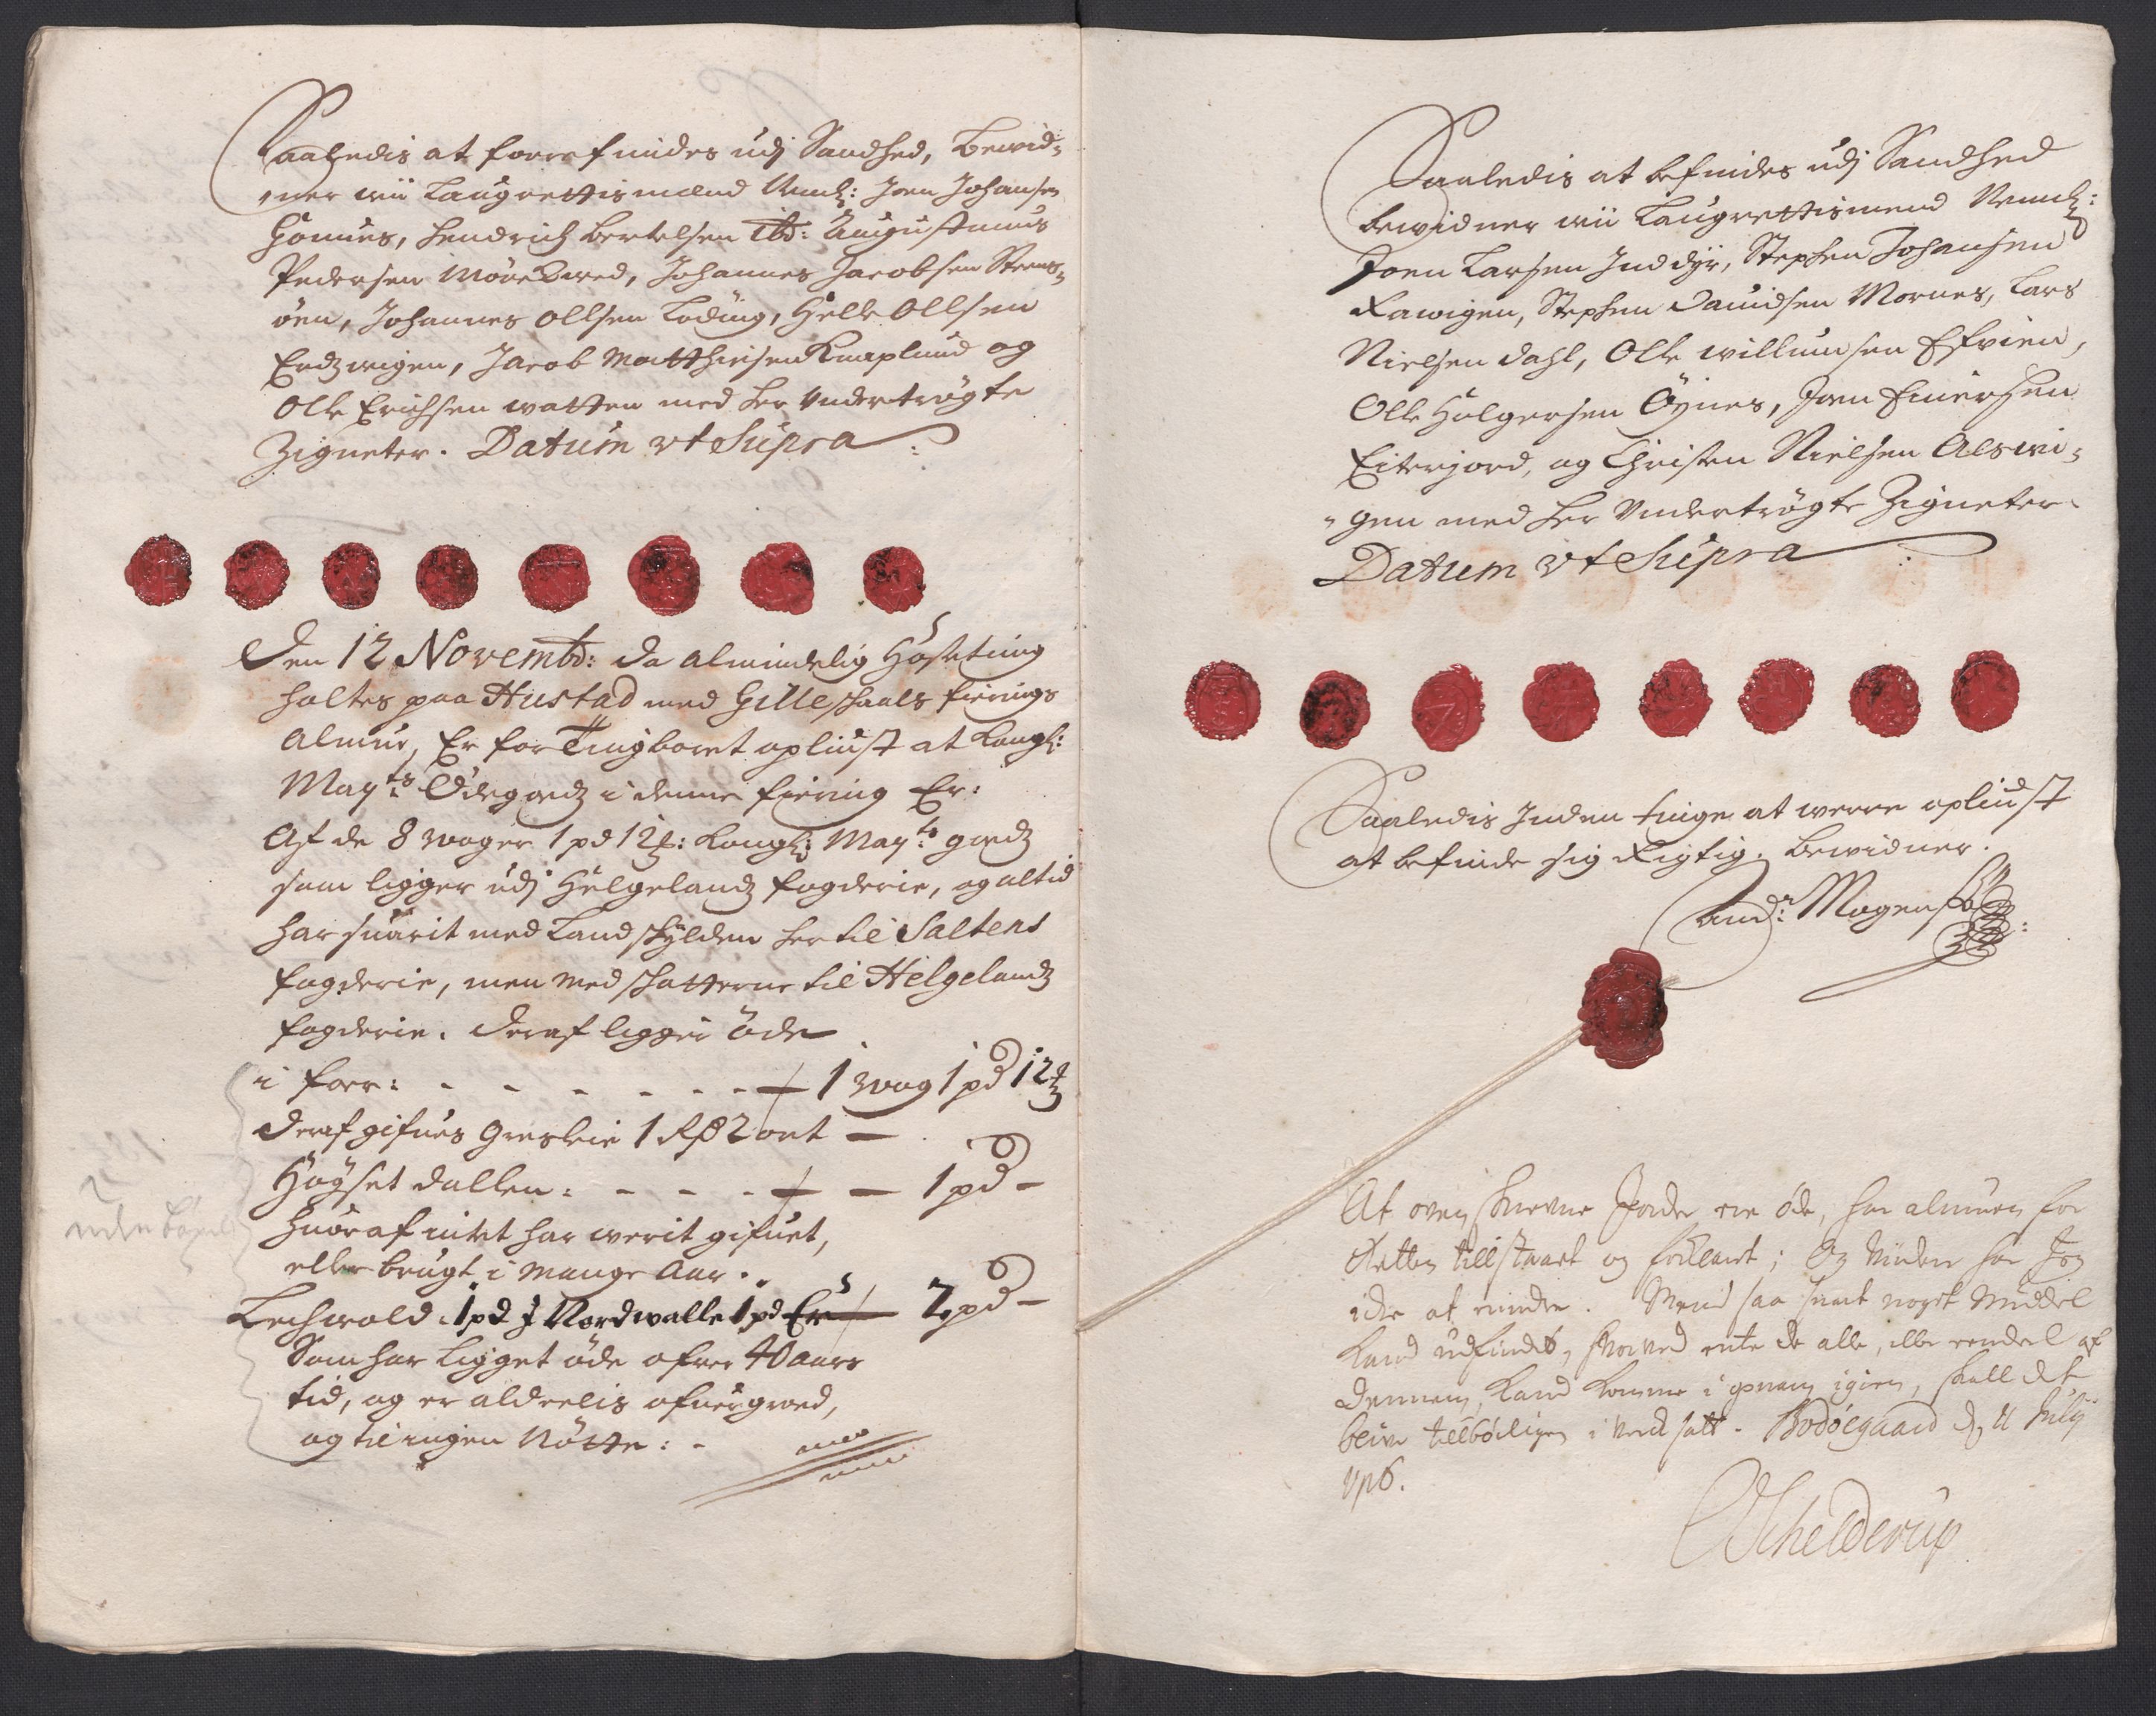 Saaledis at forrefindes udj Sandhed, Bewid-
ner wii Laugrettismænd Neml: Joen Johansen
Godnes, Hendrich Bertelsen ibd: Augustinus
Pedersen Mørkved, Johannes Jacobsen Strøms-
øen, Johannes Ollsen Løding, Helle Ollsen
Erdzwigen, Jacob Matthiesen Knaplund og
Olle Erichsen watten med her undertrøgte
Zigneter. Datum vt Supra
Den 12 Novembr: da almindelig Høsteting
holtes paa Hustad med Gilleschaals fierings
Almue, Er for Tingboret opliust at Kongl:
Mayts Ødegodz i denne fiering Er:
Af de 8 woger 1 pd 12: Kongl: Mayts godz
som ligger udj Helgelandz fogderie, og altid
har suarit med Landskylden her til Saltens
fogderie, men med skatterne til Helgelandz
fogderie. Deraf ligger øde
i forr: - - - - - - 1 wog 1 pd 12
deraf gifues Græsleie 1 Rß 2 ort —
Høgset dallen: - - - - — 1 pd -
huoraf intet har werit gifuet,
eller brugt i mange Aar.
Lechwold 1 pd J Nordwalle 1 pd Er — 2 pd -
Som har ligget øde ofuer 40 aars
tid, og er alderelis ofuergroed,
og til ingen Nøtte: -
Saaledis at befindes udj Sandhed
bewidner wii Laugrettismend Neml:
Joen Larsen Inddyr, Stephen Johansen
Kawigen, Stephen Dauidsen Mornes, Lars
Nielsen Dahl, Olle Willumsen Esvien,
Olle Holgersen Øynes, Joen Einersen
Eiterjord, og Christen Nielsen Alswi-
gen med her Undertrøgte Zigneter
Datum vt Supra
Saaledis Inden tinge at werre opliust
at befinde sig Rigtig. Bewidner.
And: Mogensß
At ovenskrevne Jorder ere øde, har almuen for
Retten tillstaaet og forklart; Og Videre har Jeg
icke at erindre. Mend saa snart noget Middel
kand udfindes, hvorved ente de alle, eller eendeel af
dennem, kand komme i gienem igien, skall det
blive tilbørligen i Verck satt. Bodøegaard d. 11 July
1716.
Schelderup